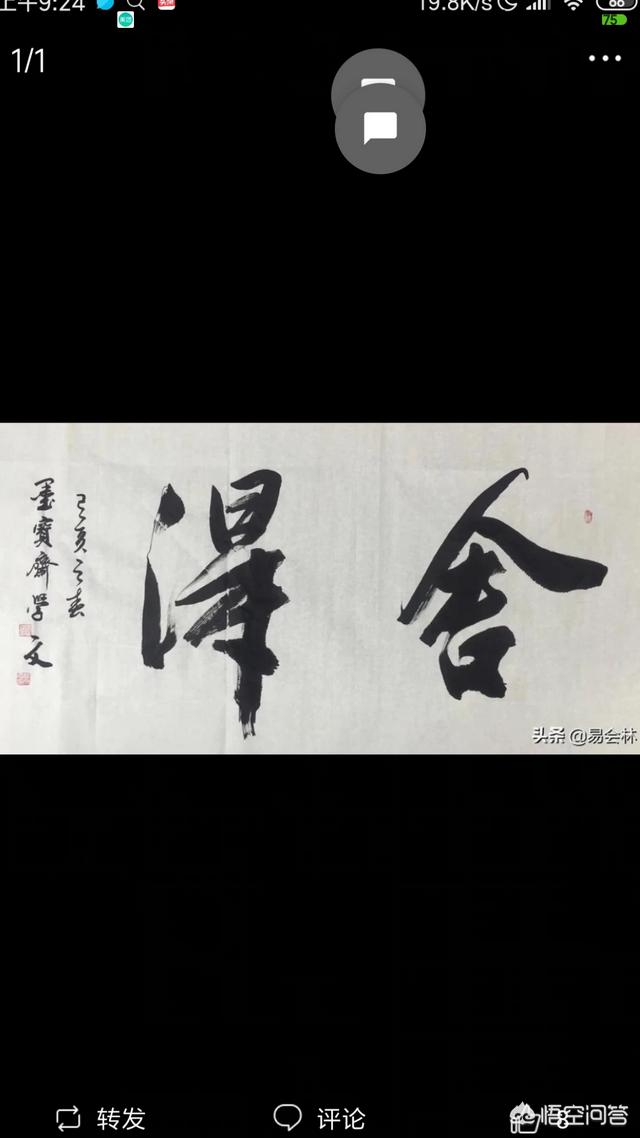 上午9:24
19.8K/s
75
1/1
舍得
己亥之春
墨寶齋学文
头条 @易会林
转发
评论
8
悟空问答